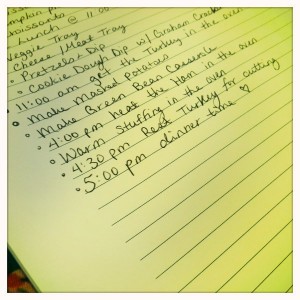 Pumpkin
Croissants
Lunch @ 11:00
Veggie Tray
Cheese/Meat Tray
• Pretzel or Dip
• Cookie Dough Dip w/ Graham Crack
• 11:00 am get the Turkey in the oven
• Make Mashed Potatoes
• Make Green Bean Casserole
• 4:00 pm heat the Ham in the oven
• Warm stuffing in the oven
• 4:30 pm Rest Turkey for cutting
• 5:00 pm dinner time ♡